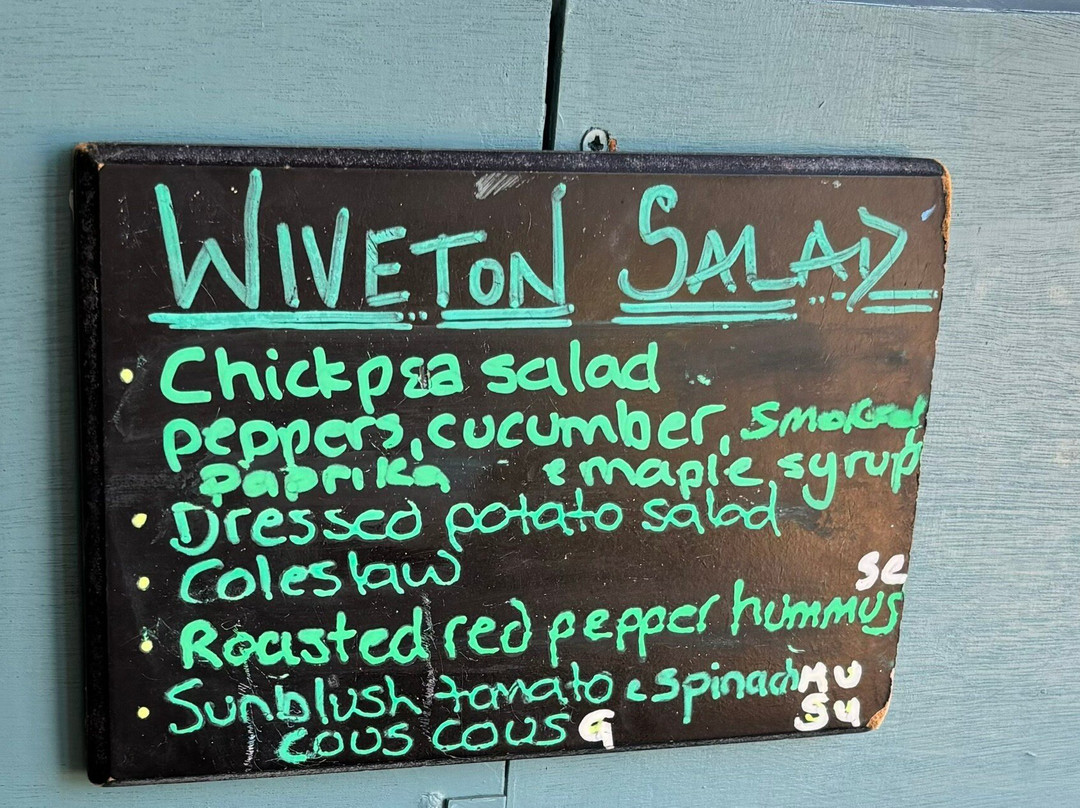 WIVETON SALAD
• Chickpea salad
peppers, cucumber, smoked
paprika & maple syrup
• Dressed potato salad
• Coleslaw
SE
• Roasted red pepper hummus
• Sunblush tomato & spinach MU
cous cous G SU